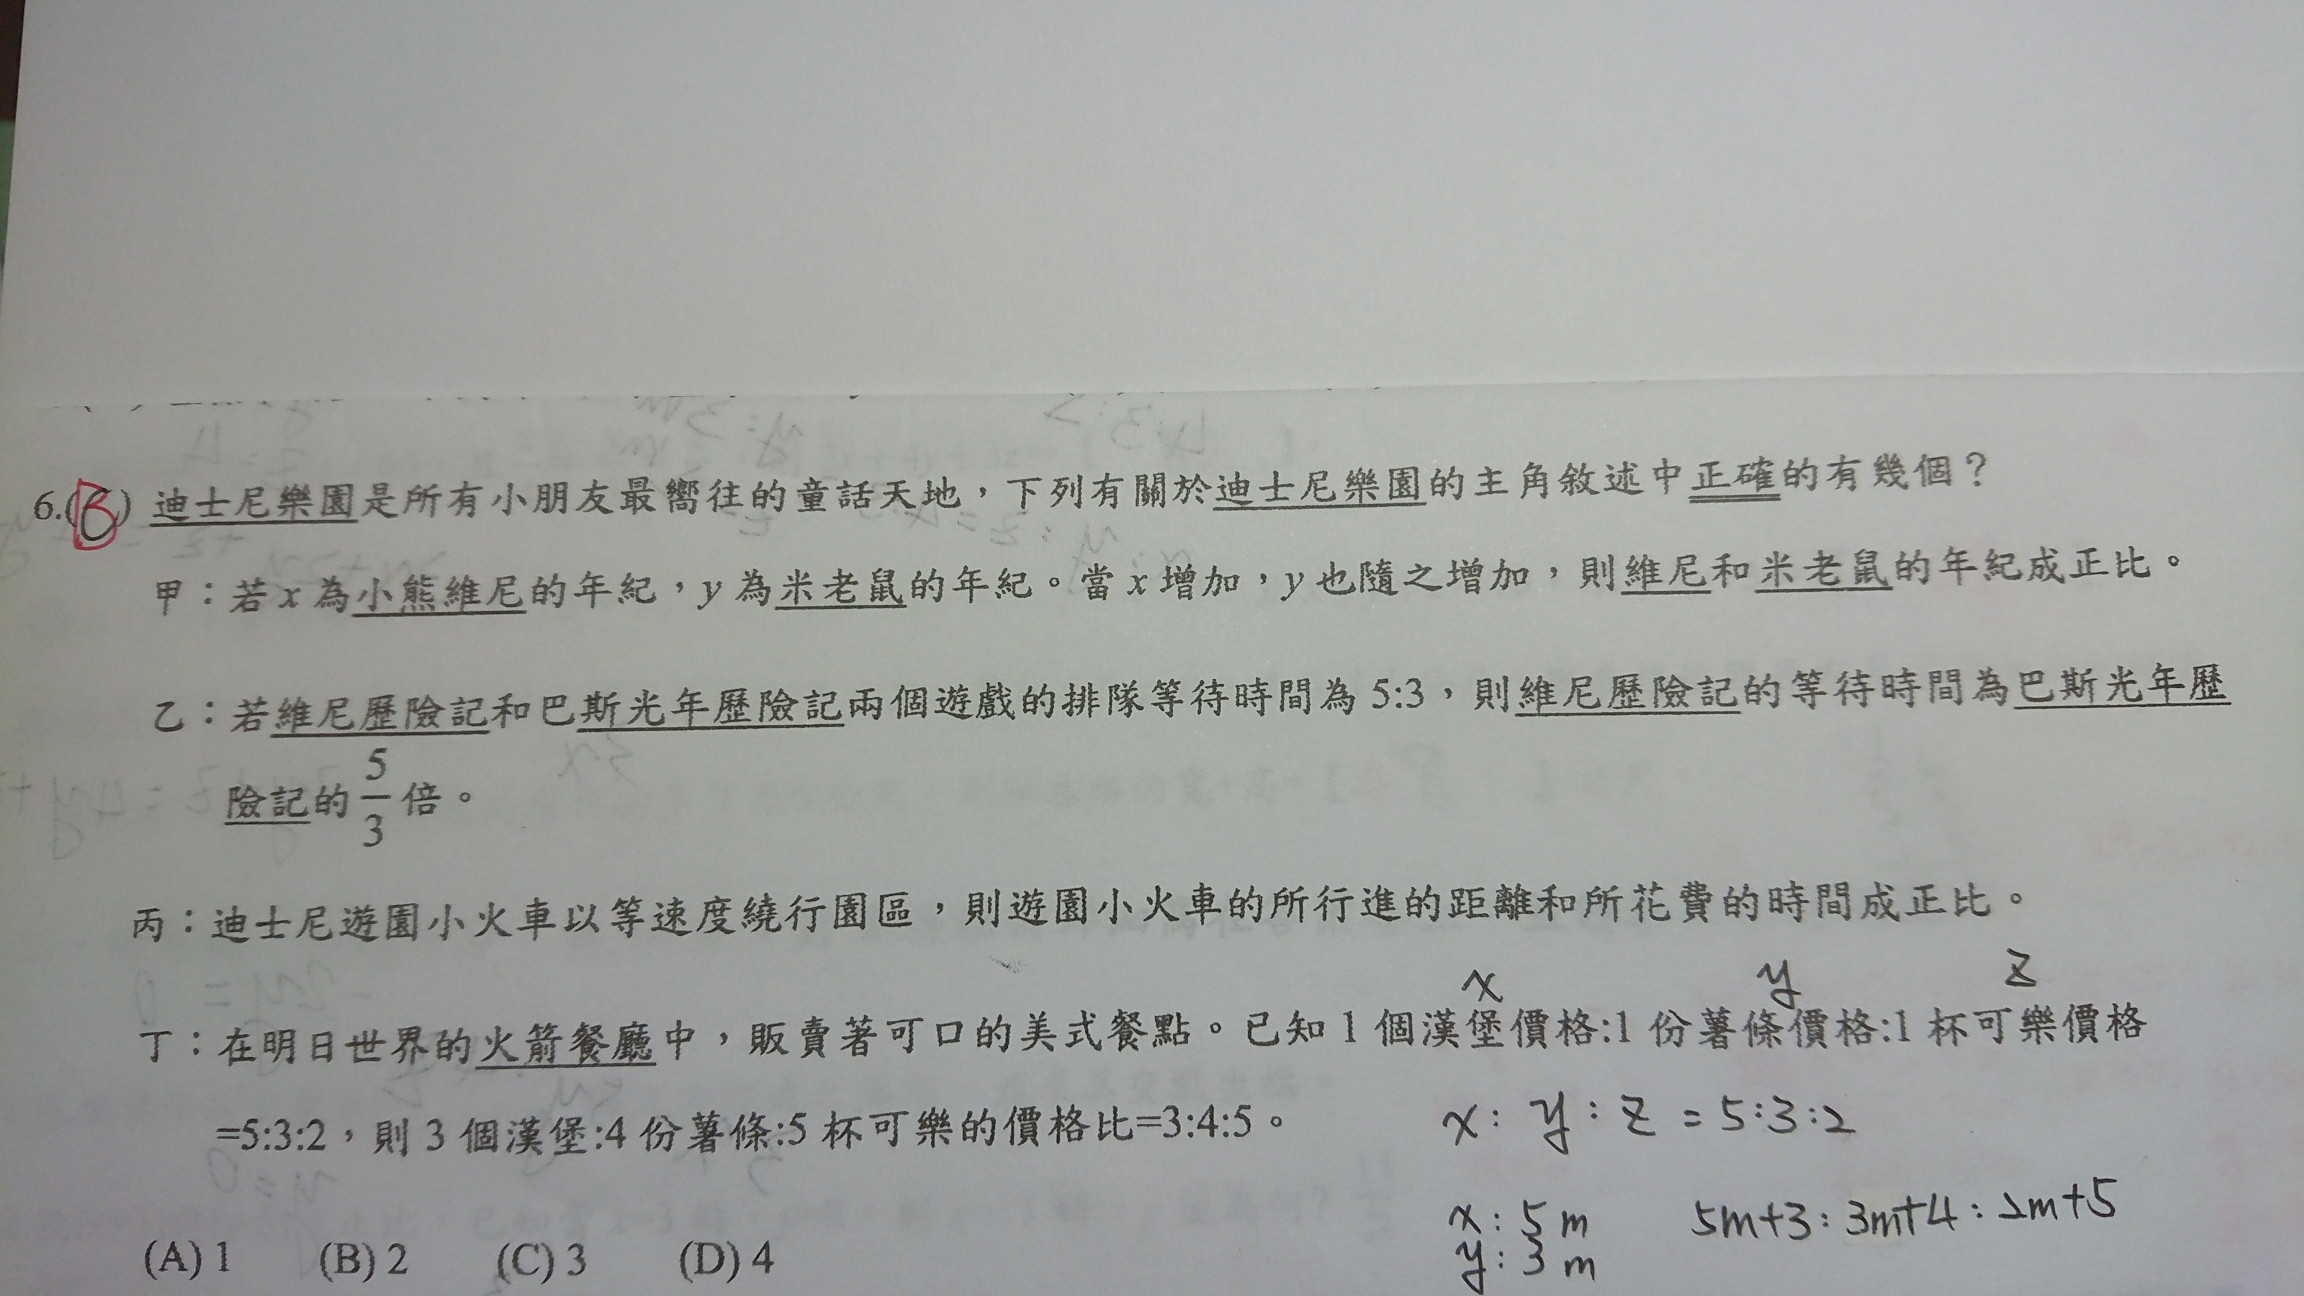 6.(B) 迪士尼樂園是所有小朋友最嚮往的童話天地，下列有關於迪士尼樂園的主角敘述中正確的有幾個？
甲：若x為小熊維尼的年紀，y為米老鼠的年紀。當x增加，y也隨之增加，則維尼和米老鼠的年紀成正比。
乙：若維尼歷險記和巴斯光年歷險記兩個遊戲的排隊等待時間為5:3，則維尼歷險記的等待時間為巴斯光年歷
險記的5/3倍。
丙：迪士尼遊園小火車以等速度繞行園區，則遊園小火車的所行進的距離和所花費的時間成正比。
x y z
丁：在明日世界的火箭餐廳中，販賣著可口的美式餐點。已知1個漢堡價格:1份薯條價格:1杯可樂價格
=5:3:2，則3個漢堡:4份薯條:5杯可樂的價格比=3:4:5。
x: y: z = 5:3:2
x: 5m 5m+3: 3m+4: 2m+5
y: 3m
(A) 1 (B) 2 (C) 3 (D) 4